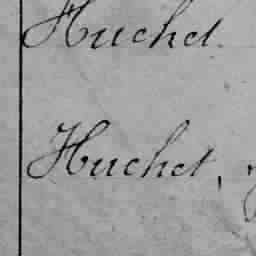 Huchet
Huchet,